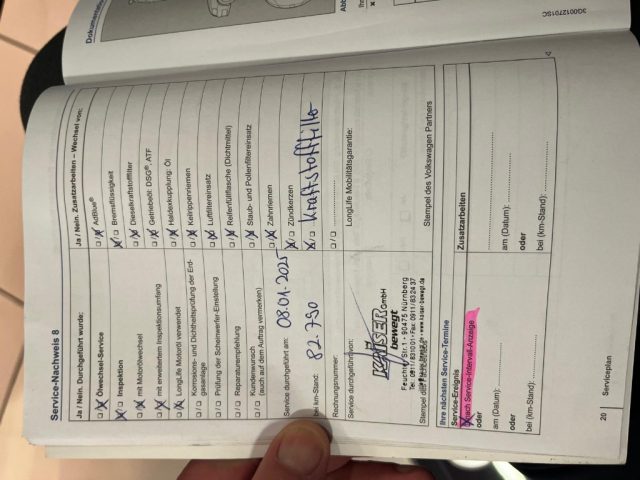 Service-Nachweis 8
Ja / Nein. Durchgeführt wurde:
□/☒ Ölwechsel-Service
☒/□ Inspektion
□/☒ mit Motorölwechsel
□/☒ mit erweitertem Inspektionsumfang
□/☒ LongLife Motoröl verwendet
□/□ Korrosions- und Dichtheitsprüfung der Erdgasanlage
□/□ Prüfung der Scheinwerfer-Einstellung
□/□ Reparaturempfehlung
□/□ Kundenwunsch
(auch auf dem Auftrag vermerken)
Service durchgeführt am: 08.01.2025
bei km-Stand: 82.790
Rechnungsnummer:
Service durchgeführt von:
KAISER GmbH
bewegt
Feuchter Str. 1 · 90475 Nürnberg
Tel. 0911/83 10 01 · Fax 0911/83 24 37
Ja / Nein. Zusatzarbeiten – Wechsel von:
□/☒ AdBlue®
☒/□ Bremsflüssigkeit
□/☒ Dieselkraftstofffilter
□/☒ Getriebeöl: DSG®, ATF
□/☒ Haldexkupplung: Öl
□/☒ Keilrippenriemen
□/☒ Luftfiltereinsatz
□/☒ Reifenfüllflasche (Dichtmittel)
□/☒ Staub- und Pollenfiltereinsatz
□/☒ Zahnriemen
☒/□ Zündkerzen
☒/□ Kraftstofffilter
□/□
LongLife Mobilitätsgarantie:
Stempel des Volkswagen Partners
Ihre nächsten Service-Termine
Service-Ereignis
☒ nach Service-Intervall-Anzeige
oder
am (Datum):
oder
bei (km-Stand):
Zusatzarbeiten
am (Datum):
oder
bei (km-Stand):
20 | Serviceplan
3G0012701SC